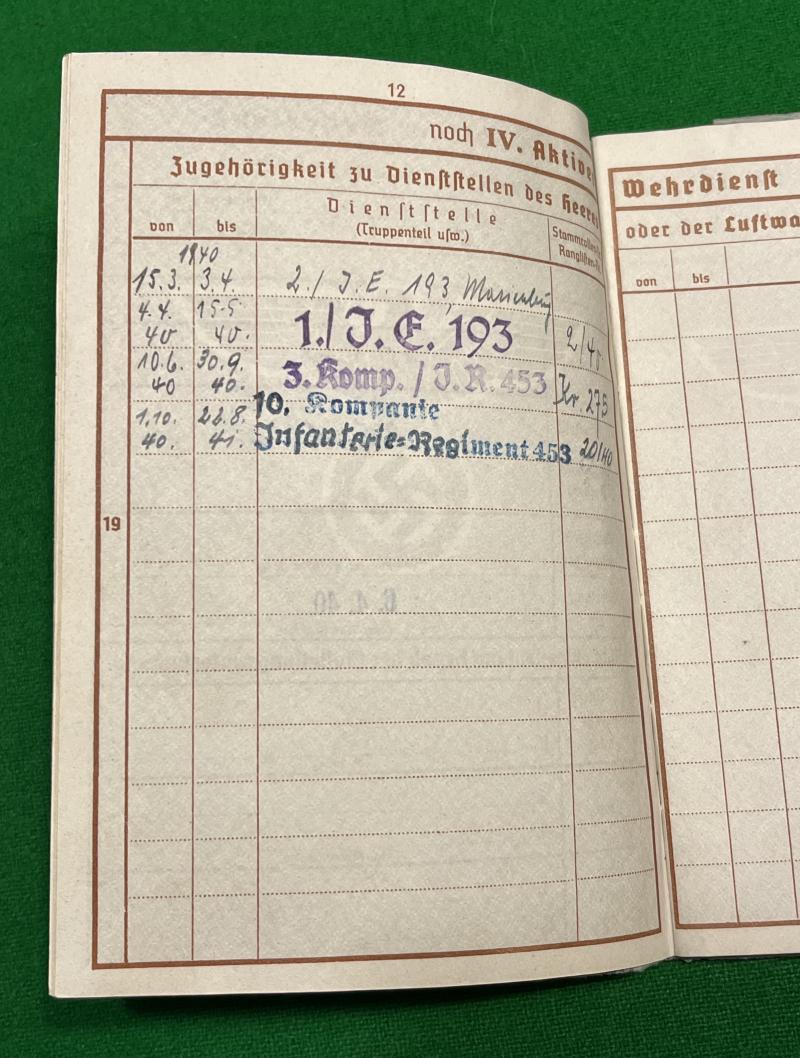 12
noch IV. Aktive
Zugehörigkeit zu Dienststellen des Heeres
von bis Dienststelle
(Truppenteil usw.)
Stammrollen-
Ranglisten-
1940
15.3. 3.4. 2./ J. E. 193, Marienburg
4.4. 40 15.5. 40. 1./ J. E. 193 2/40
10.6. 40 30.9. 40. 3. Komp. / J. R. 453 Kr 275
1.10. 40. 22.8. 41. 10. Kompanie
Infanterie-Regiment 453 20/40
19
6. 4. 40
Wehrdienst
oder der Luftwa
von bis